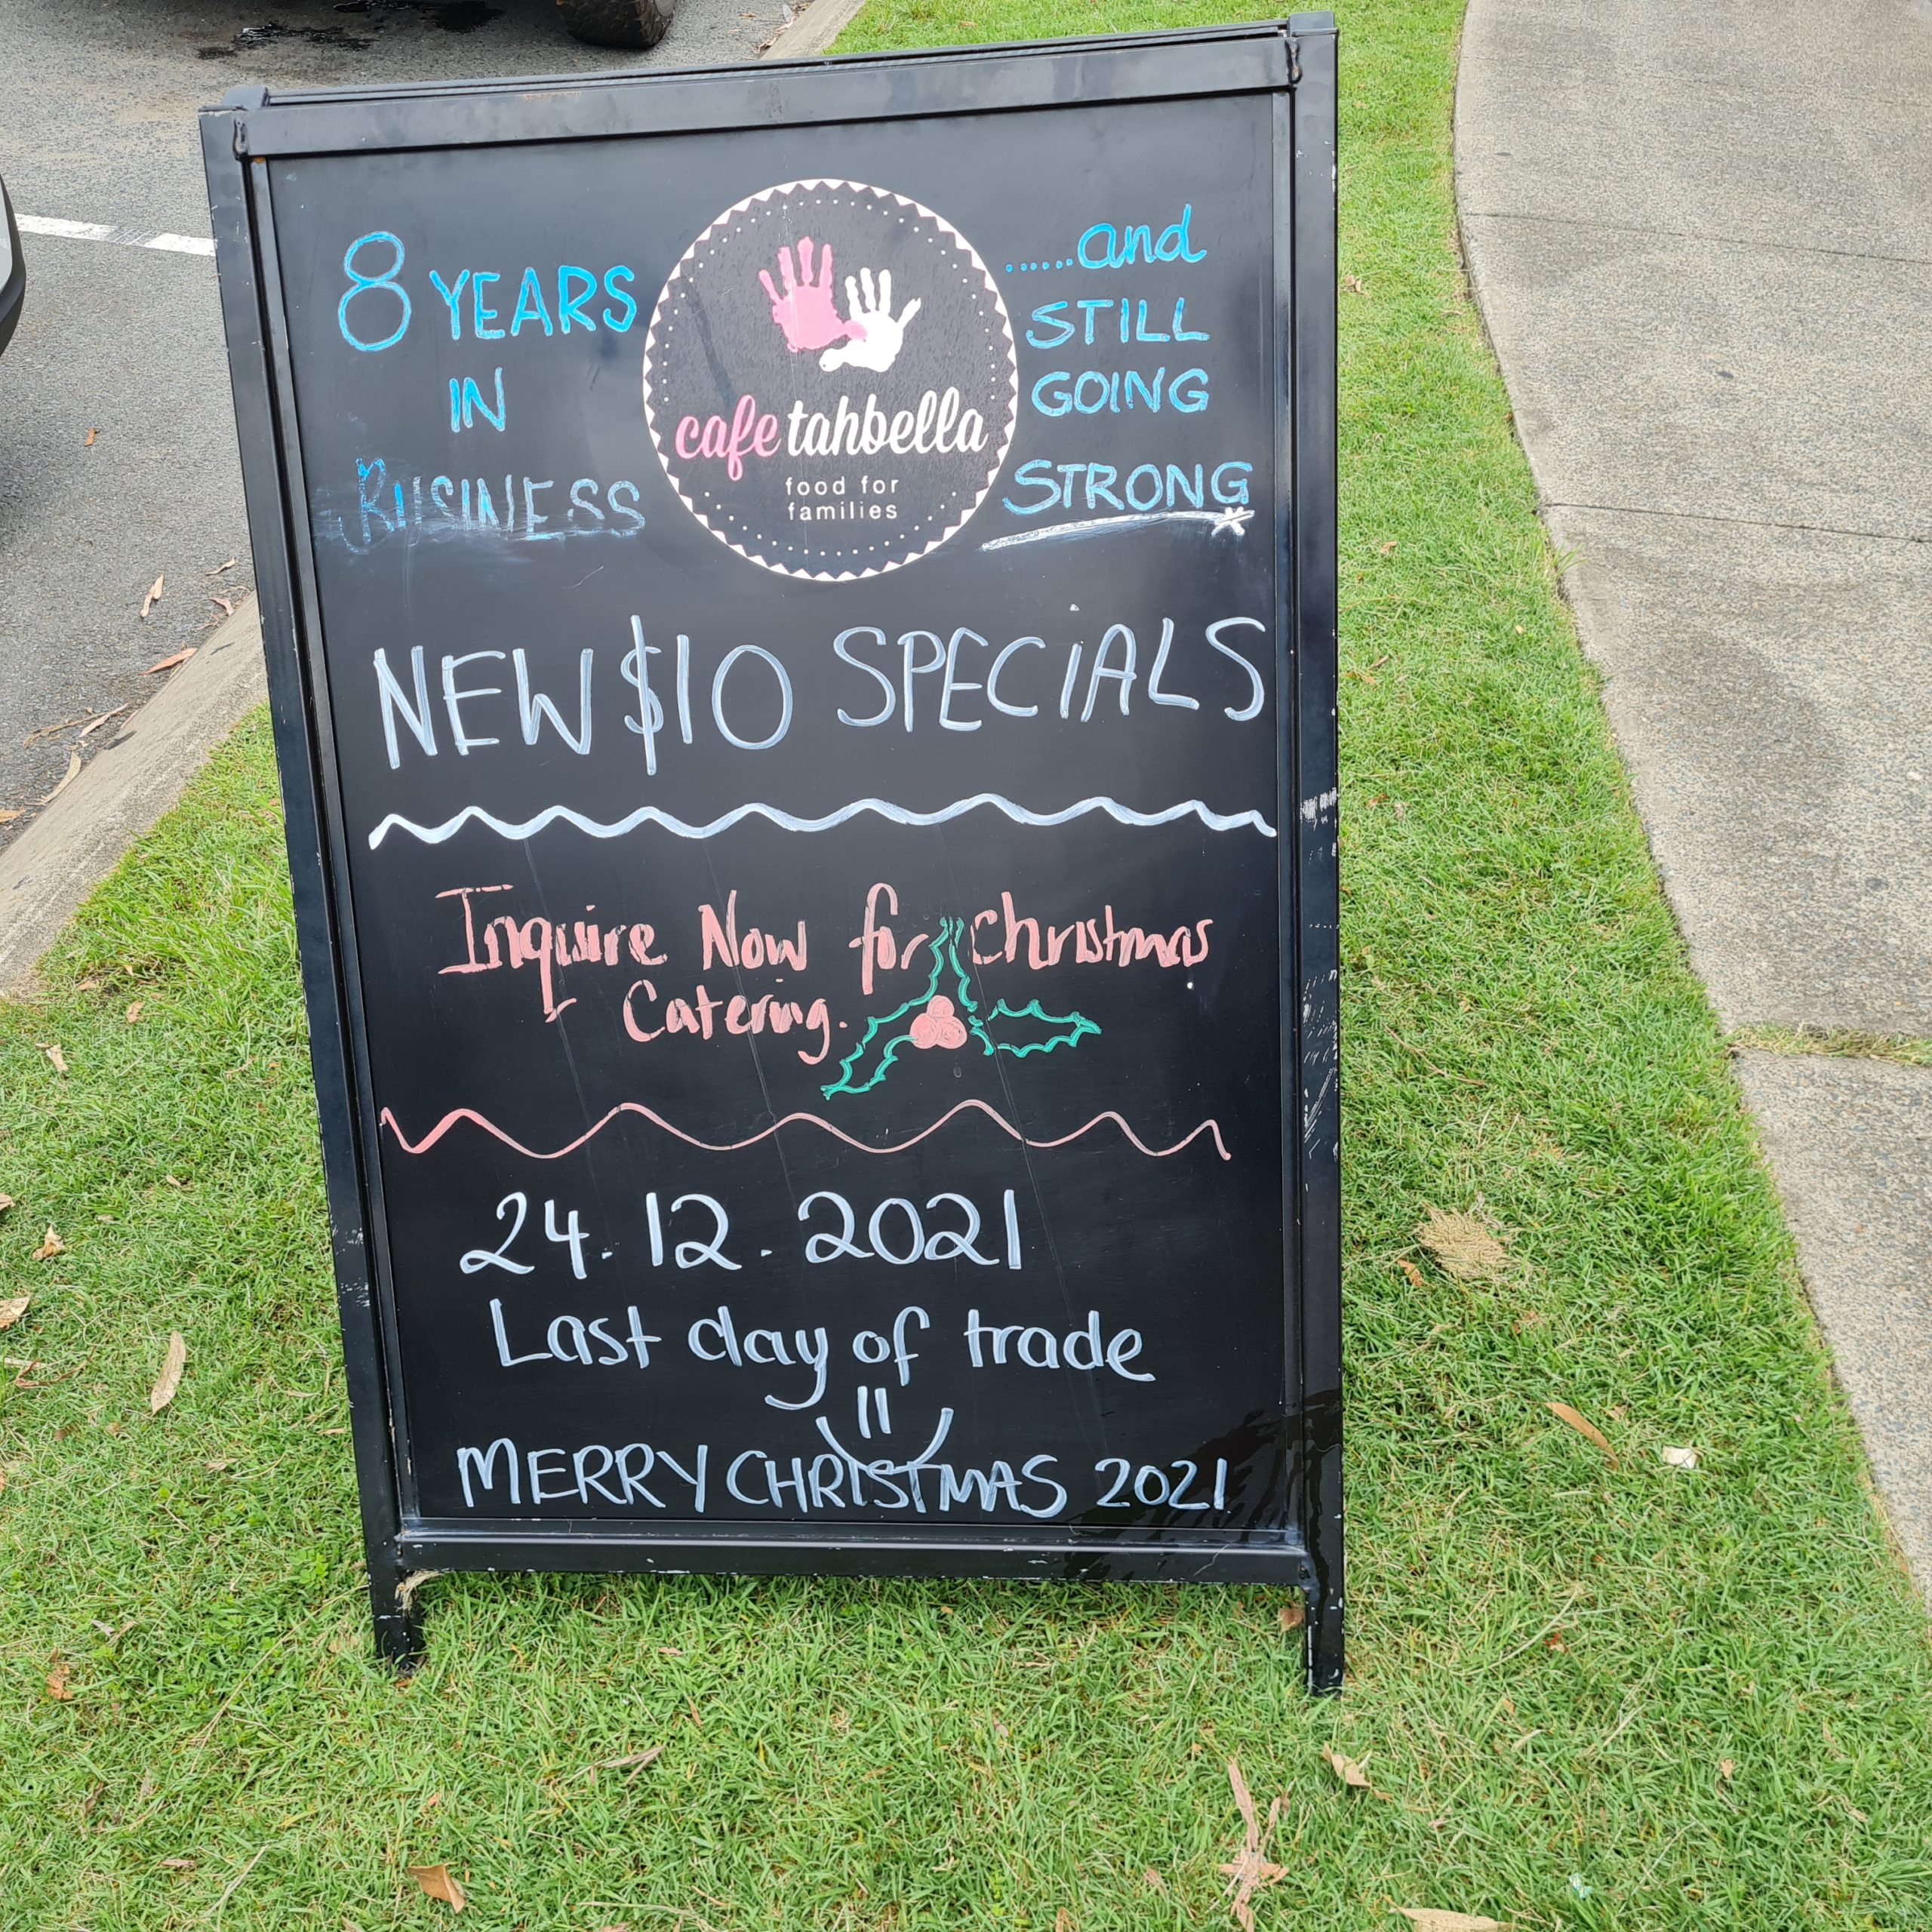 8 YEARS
IN
BUSINESS
cafe tahbella
food for
families
......and
STILL
GOING
STRONG
NEW $10 SPECIALS
Inquire Now for Christmas
Catering.
24.12.2021
Last day of trade
MERRY CHRISTMAS 2021